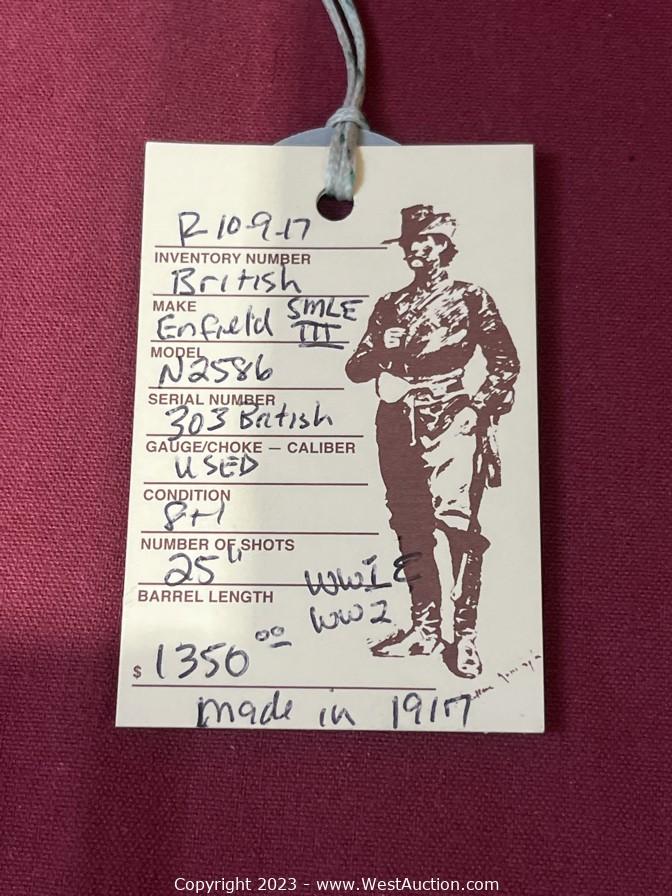 R 10-9-17
INVENTORY NUMBER
British
MAKE
Enfield SMLE III
MODEL
N2586
SERIAL NUMBER
303 British
GAUGE/CHOKE — CALIBER
USED
CONDITION
8+1
NUMBER OF SHOTS
25"
BARREL LENGTH
WW1 &
WW2
$ 1350 00
made in 1917
Copyright 2023 - www.WestAuction.com